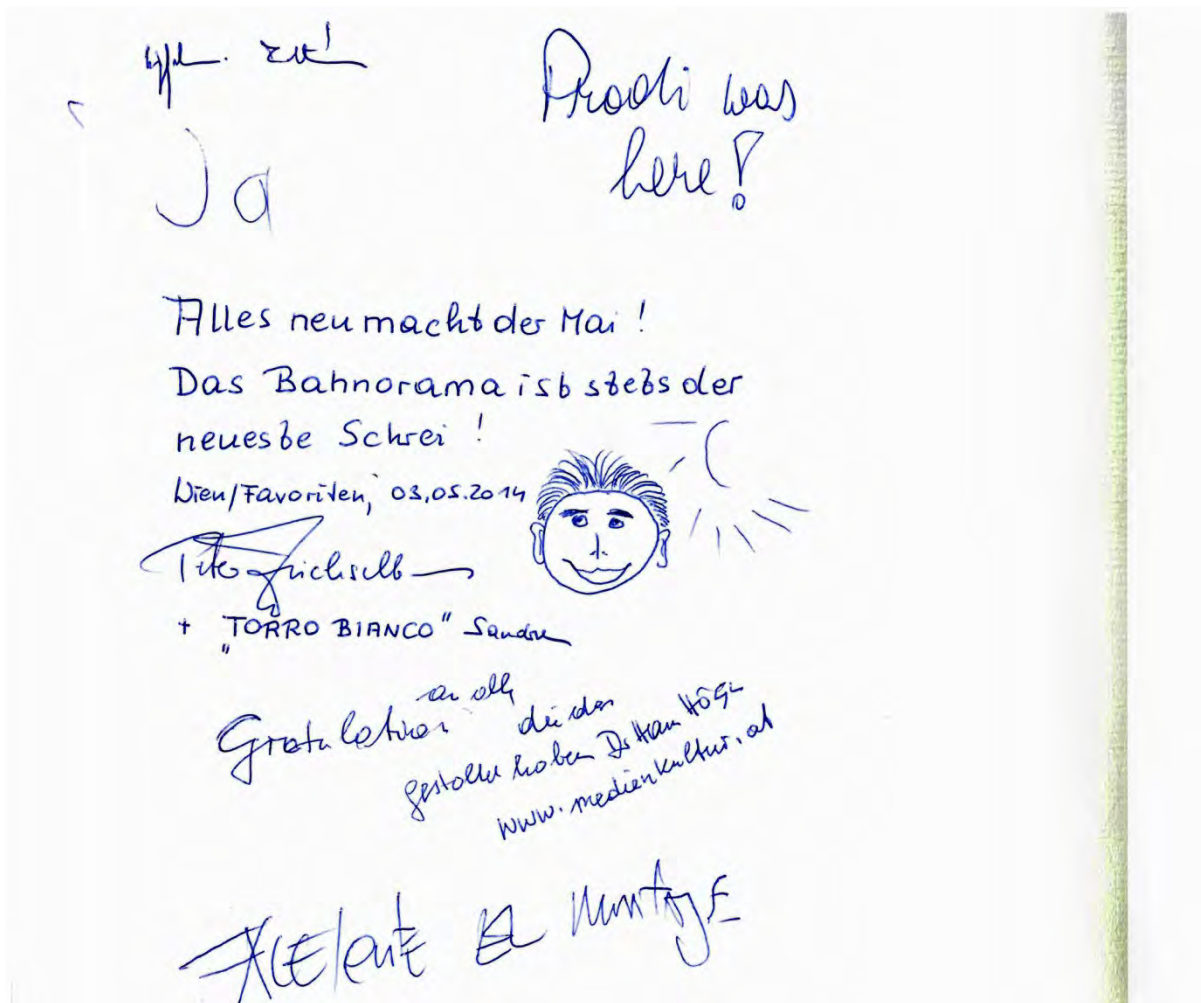 Prodi was
here!
Ja
Alles neu macht der Mai!
Das Bahnorama ist stets der
neueste Schrei!
Wien/Favoriten, 03.05.2014
+ "TORRO BIANCO" Sandra
Gratulation an alle die das
gestaltet haben Dr Hans Högl
www.medienkultur.at
EXCElentE El MontajE